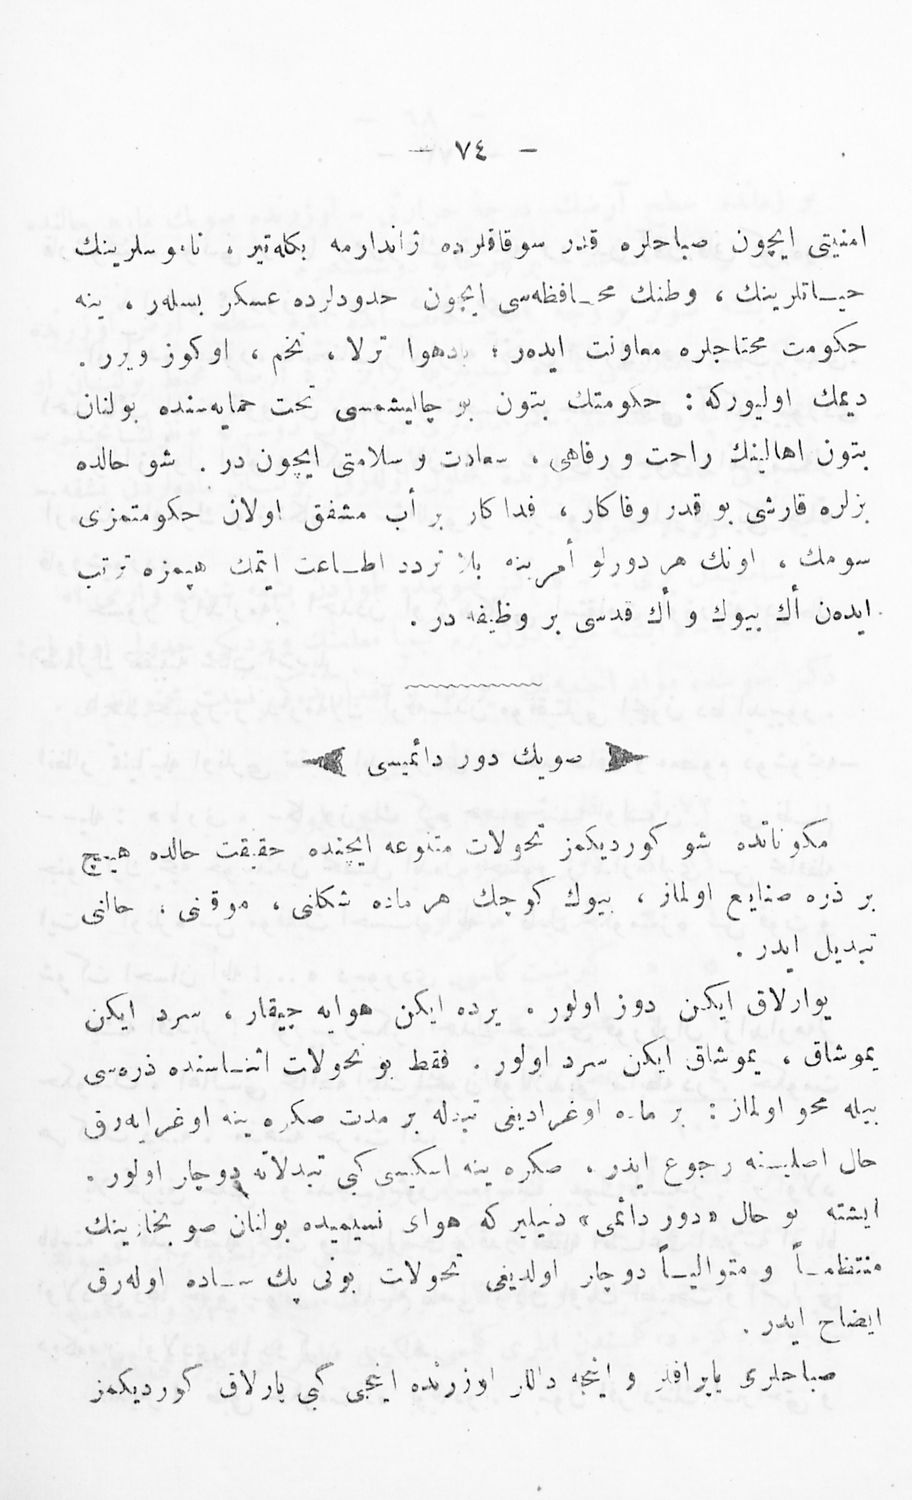 – ٧٤ –
امنیتی ایچون صباحلره قدر سوقاقلرده ژاندارمه بكله‌تیر ، ناموسلرینك
حیـاتلرینك ، وطنك محـافظه‌سی ایچون حدودلرده عسكر بسلەر ، ینه
حكومت محتاجلره معاونت ایدەر ؛ بادهوا ترلا ، تخم ، اوكوز ویرر .
دیمك اولیوركه : حكومتك بتون بو چالیشمسی تحت حمایه‌سنده بولنان
بتون اهالینك راحت و رفاهی ، سعادت و سلامتی ایچون در . شو حالده
بزلره قارشی بو قدر وفاكار ، فداكار بر أب مشفق اولان حكومتمزی
سومك ، اونك هر دورلو أمرینه بلا تردد اطـاعت ایتمك هپمزه ترتب
ایدەن أك بیوك و أك قدسی بر وظیفه در .
صویك دور دائمیسی
مكوناتده شو كوردیكمز تحولات متنوعه ایچنده حقیقت حالده هیچ
بر ذره ضایع اولماز ، بیوك كوچك هر ماده شكلنی ، موقعنی ، حالنی
تبدیل ایدر .
یوارلاق ایكن دوز اولور . یرده ایكن هوایه چیقار ، سرد ایكن
یموشاق ، یموشاق ایكن سرد اولور . فقط بو تحولات اثنـاسنده ذره‌سی
بیله محو اولماز : بر ماده اوغرادیغی تبدله بر مدت صكره ینه اوغرایه‌رق
حال اصلیسنه رجوع ایدر . صكره ینه اسكیسی كبی تبدلاته دوچار اولور .
ایشته بو حال «دور دائمی» دنیلیر كه هوای نسیمیده بولنان صو بخارینك
منتظمـاً و متوالیـاً دوچار اولدیغی تحولات بونی پك سـاده اوله‌رق
ایضاح ایدر .
صباحلری یاپراقلر و اینجه داللر اوزرنده اینجی كبی پارلاق كوردیكمز